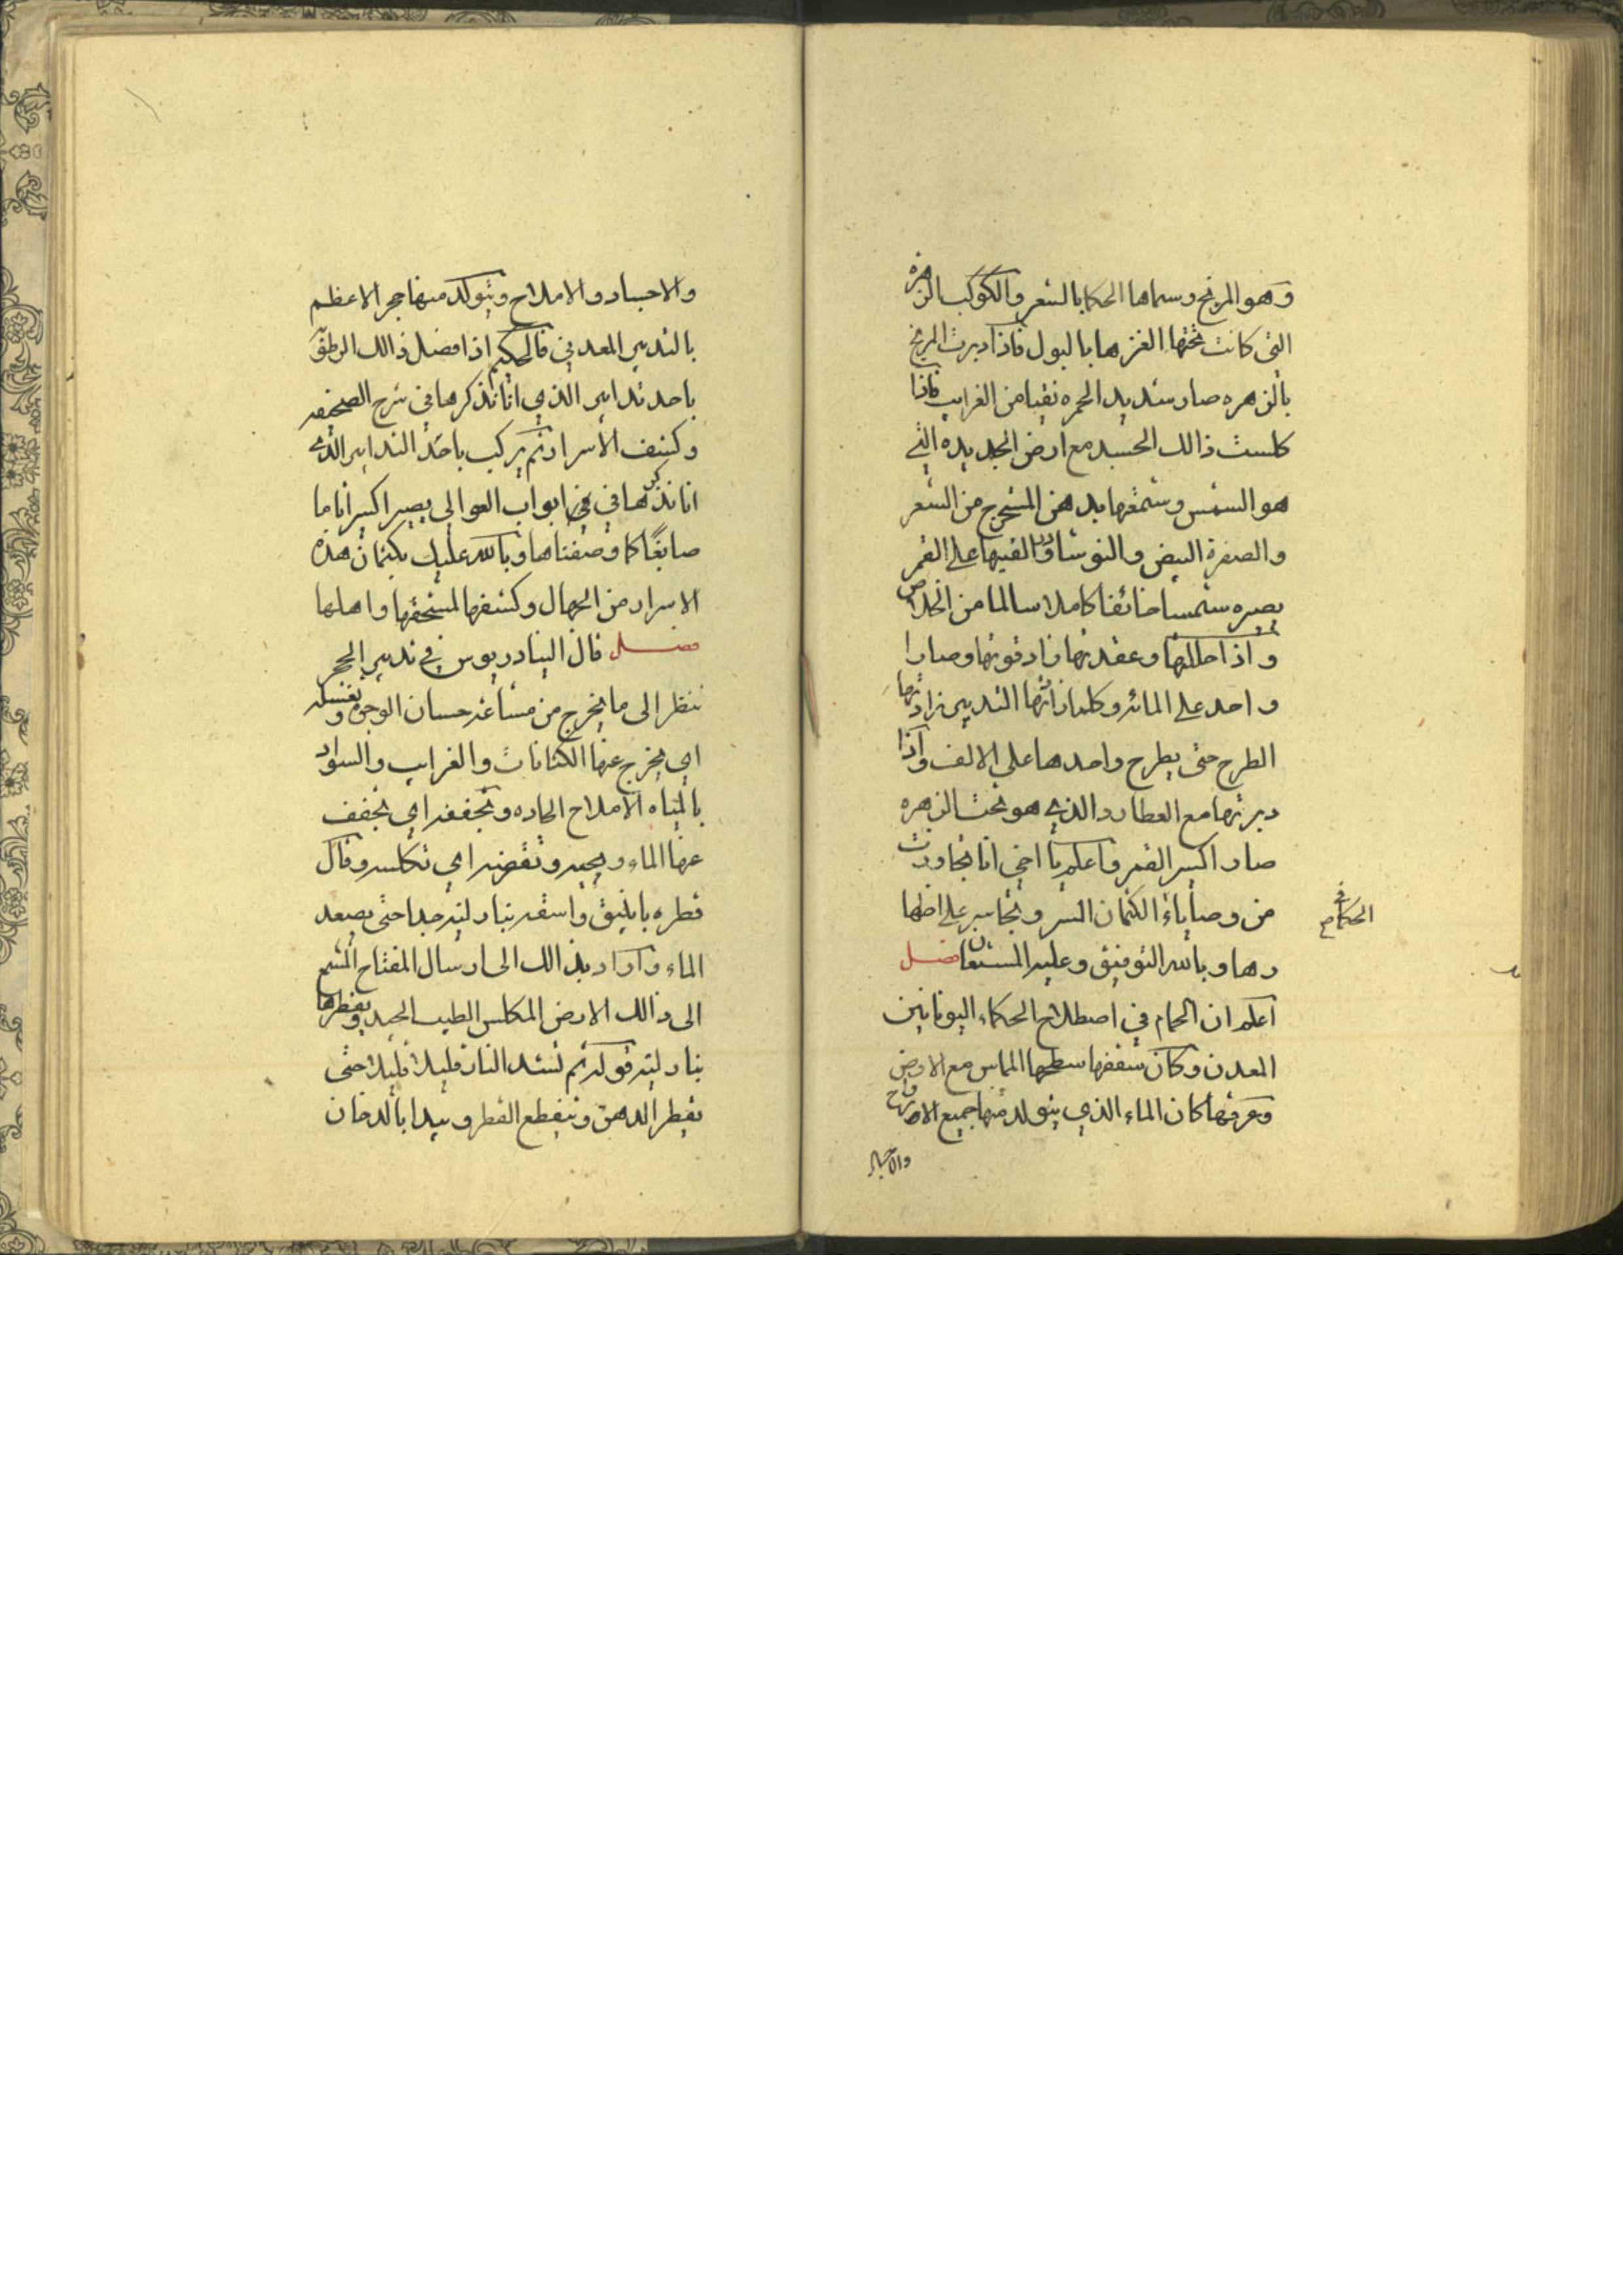 وهو المريخ وسماها الحكما بالشعر والكوكب الزهرة
التي كانت تحتها الغزها بالبول فاذا دبرت المريخ
بالزهره صار شديد الحمره نقيا من الغرايب فاذا
كلست ذالك الجسد مع ارض الجديده التي
هو الشمس وشمعها بدهن المستخرج من الشعر
والصفرة البيض والنوشادر والقيها على القمر
يصيره شمسا خائفا كاملا سالما من الخلاص
واذا حللتها وعقدتها زاد قوتها وصار
واحد على المائه وكلما زادتها التدبير زادتها
الطرح حتى يطرح واحدها على الالف واذا
دبرتها مع العطارد الذي هو تحت الزهره
صار اكسير القمر واعلم يا اخي انا تجاوزت
من وصاياء الكتمان السر وتجاسر على اظها
الحكما في
رها وبالله التوفيق وعليه المستعان فصل
اعلم ان الحمام في اصطلاح الحكماء اليونانين
المعدن وكان سقفها سطحها المماس مع الارض
وعرقها كان الماء الذي يتولد منها جميع الارواح
والاجساد
والاجساد والاملاح ويتولد منها حجر الاعظم
بالتدبير المعدني قال الحكيم اذا فضل ذالك الرطوبة
باحد تدابير الذي انا نذكرها في شرح الصحيفه
وكشف الاسرار ثم يركب باحد التدابير الذي
انا نذكرها في ابواب العوالي يصير اكسيرا تاما
صابغًا كما وصفناها وبالله عليك بكتمان هذه
الاسرار من الجهال وكشفها لمستحقها واهلها
فصل قال البنادريوس في تدبير الحجر
ننظر الى ما يخرج من حسان الوجوه ونغسله
اي يخرج عنها الكتانات والغرايب والسواد
بالمياه الاملاح الحاده وتجففه اي تجفف
عنها الماء وتكلسه وقال
قطره بانبيق واسقه بنار لينه جدا حتى يصعد
الماء واراد بذالك الى ارسال المفتاح المشمع
الى ذالك الارض المكلس الطيب الجيد ويقطرها
بنار لينه قوله ثم تشد النار قليلا قليلا حتى
يقطر الدهن وينقطع القطر ويبدا بالدخان